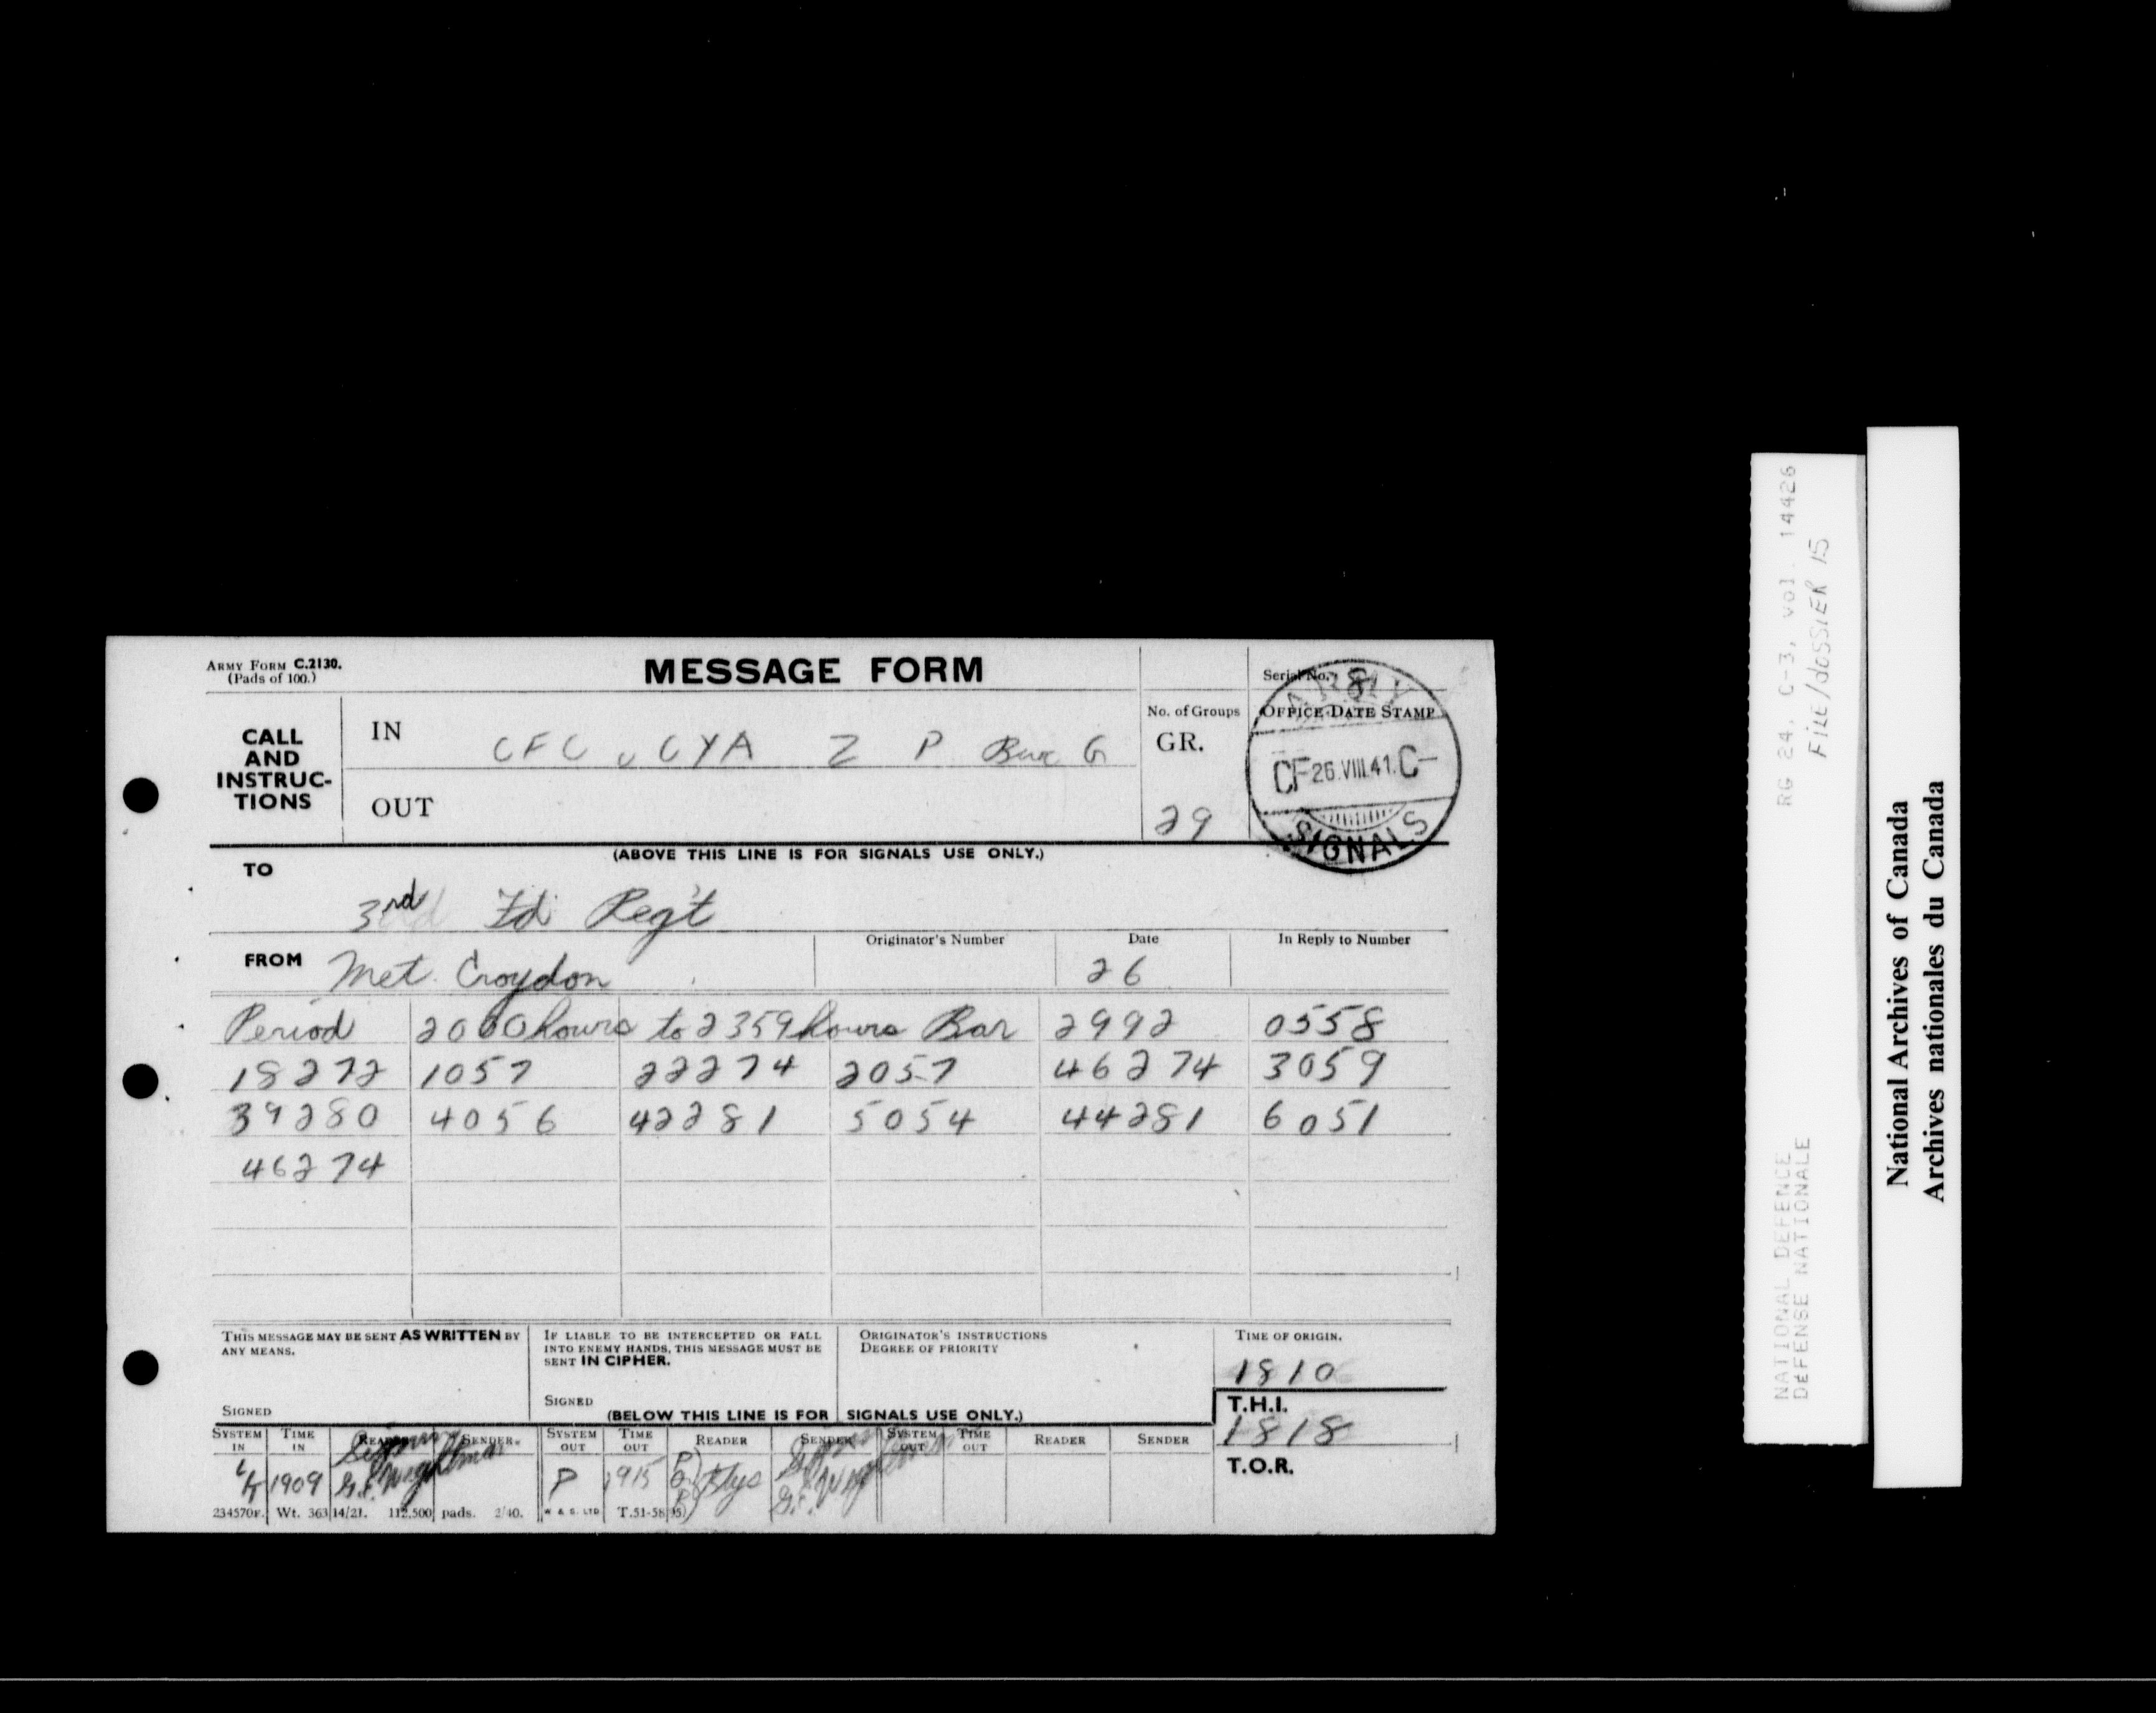 ARMY FORM C.2130.
(Pads of 100.)
MESSAGE FORM
Serial No. 8
CALL AND INSTRUC-TIONS
IN CFC v CYA Z P Bux G
OUT
No. of Groups
GR.
29
OFFICE DATE STAMP
ARMY
CF 26.VIII.41. C-
SIGNALS
(ABOVE THIS LINE IS FOR SIGNALS USE ONLY.)
TO
3rd Fd Reg't
FROM Met. Croydon
Originator's Number
Date
26
In Reply to Number
Period 2000 hours to 2359 hours Bar 2992 0558
18272 1057 22274 2057 46274 3059
39280 4056 42281 5054 44281 6051
46274
THIS MESSAGE MAY BE SENT AS WRITTEN BY ANY MEANS.
SIGNED
IF LIABLE TO BE INTERCEPTED OR FALL INTO ENEMY HANDS, THIS MESSAGE MUST BE SENT IN CIPHER.
SIGNED
ORIGINATOR'S INSTRUCTIONS
DEGREE OF PRIORITY
TIME OF ORIGIN.
1810
(BELOW THIS LINE IS FOR SIGNALS USE ONLY.)
T.H.I.
1818
T.O.R.
SYSTEM IN TIME IN READER SENDER. SYSTEM OUT TIME OUT READER SENDER SYSTEM OUT TIME OUT READER SENDER
L/T 1909 P 1915
234570F. Wt. 363 14/21. 112,500 pads. 2/40. W & S. LTD T.51-58
RG 24, C-3, vol. 14426
FILE/dOSSIER 15
NATIONAL DEFENCE
DÉFENSE NATIONALE
National Archives of Canada
Archives nationales du Canada